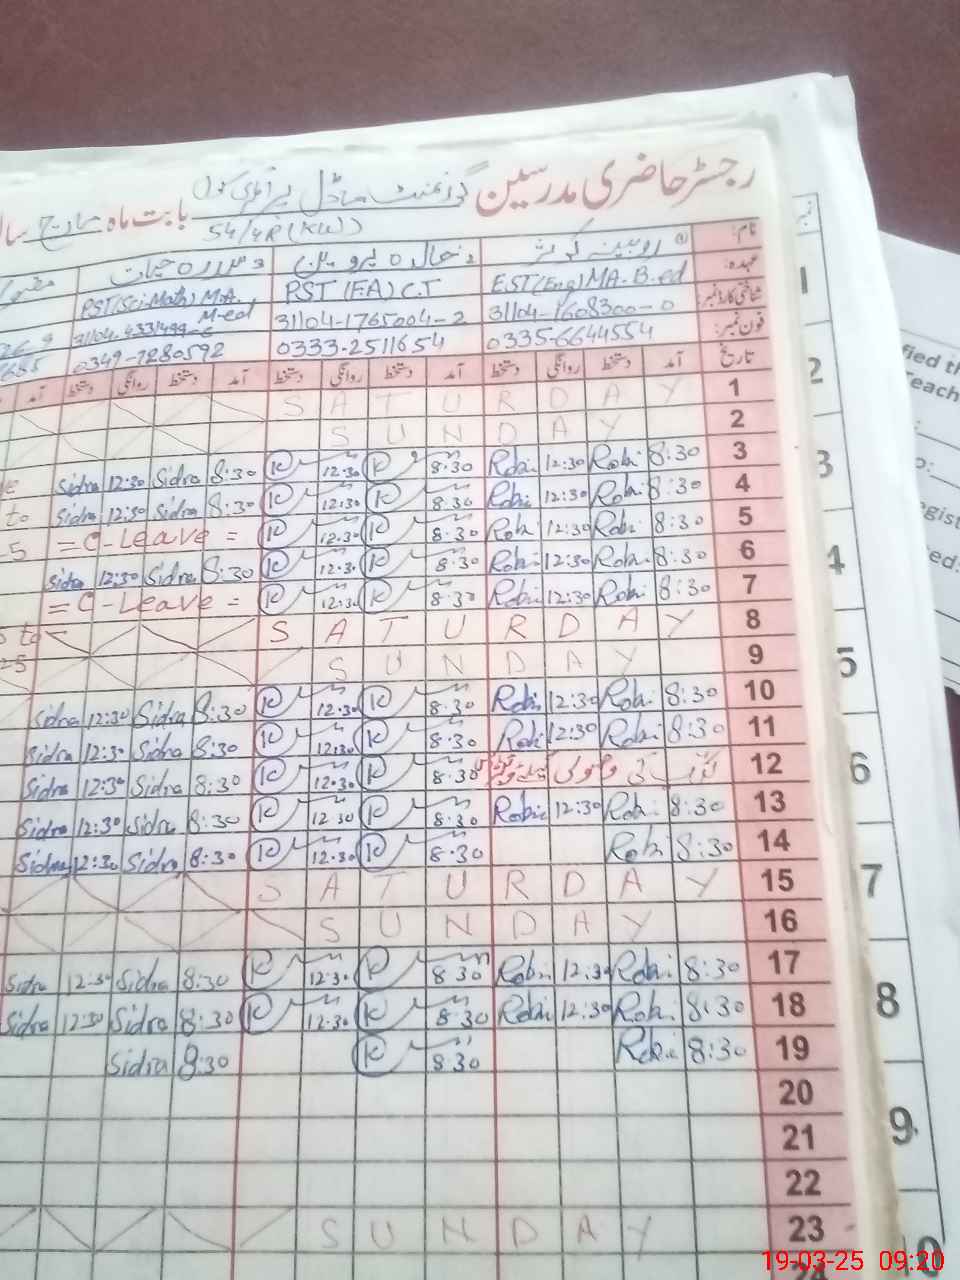 رجسٹر حاضری مدرسین گورنمنٹ ماڈل پرائمری سکول بابت ماہ مارچ سال
54/4R (KW)
نام: روبینہ کوثر
عہدہ: EST(Eng) MA. B.ed PST (F.A) C.T PST(Sci.Math) M.A. M-ed
شناختی کارڈ نمبر: 31104-1608300-0 31104-1765004-2
فون نمبر: 0335-6644554 0333-2511654 0349-7280592
تاریخ آمد دستخط روانگی دستخط آمد دستخط روانگی دستخط آمد دستخط روانگی دستخط آمد
S A T U R D A Y 1
S U N D A Y 2
Sidra 12:30 Sidra 8:30 K 12.30 K 8.30 Robi 12:30 Robi 8:30 3
Sidra 12:30 Sidra 8:30 K 12.30 K 8.30 Robi 12:30 Robi 8:30 4
= C-Leave = K 12.30 K 8.30 Robi 12:30 Robi 8:30 5
Sidra 12:30 Sidra 8:30 K 12.30 K 8.30 Robi 12:30 Robi 8:30 6
= C-Leave = K 12.30 K 8.30 Robi 12:30 Robi 8:30 7
S A T U R D A Y 8
S U N D A Y 9
Sidra 12:30 Sidra 8:30 K 12.30 K 8.30 Robi 12:30 Robi 8:30 10
Sidra 12:30 Sidra 8:30 K 12.30 K 8.30 Robi 12:30 Robi 8:30 11
Sidra 12:30 Sidra 8:30 K 12.30 K 8.30 کی وصولی 12
Sidra 12:30 Sidra 8:30 K 12.30 K 8.30 Robi 12:30 Robi 8:30 13
Sidra 12:30 Sidra 8:30 K 12.30 K 8.30 Robi 8:30 14
S A T U R D A Y 15
S U N D A Y 16
Sidra 12:30 Sidra 8:30 K 12.30 K 8.30 Robi 12:30 Robi 8:30 17
Sidra 12:30 Sidra 8:30 K 12.30 K 8.30 Robi 12:30 Robi 8:30 18
Sidra 8:30 K 8.30 Robi 8:30 19
20
21
22
S U N D A Y 23
24
1
2
3
4
5
6
7
8
9
10
19-03-25 09:20